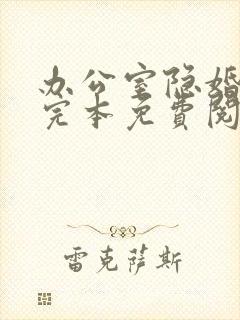 办公室隐婚
完本免費閱
雷克萨斯